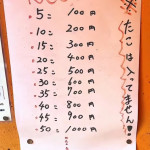 ・5＝100円
・10＝200円
・15＝300円
・20＝400円
・25＝500円
・30＝600円
・35＝700円
・40＝800円
・45＝900円
・50＝1000円
※たこは入ってません!